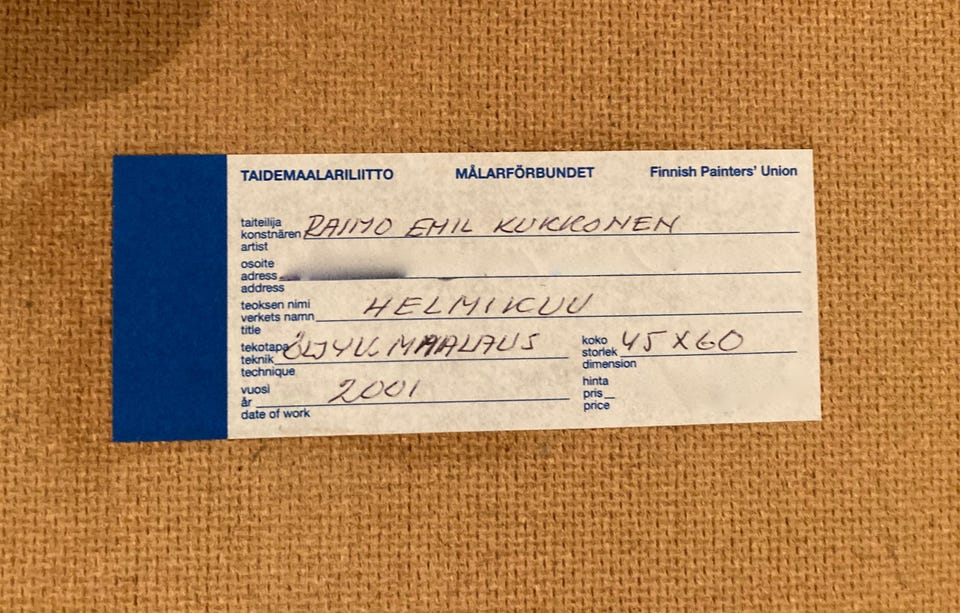 TAIDEMAALARILIITTO MÅLARFÖRBUNDET Finnish Painters' Union
taiteilija
konstnären RAIMO EMIL KUKKONEN
artist
osoite
adress
address
teoksen nimi
verkets namn HELMIKUU
title
tekotapa ÖLJYVÄRIMAALAUS
teknik
technique
koko
storlek 45 X 60
dimension
vuosi
år 2001
date of work
hinta
pris
price